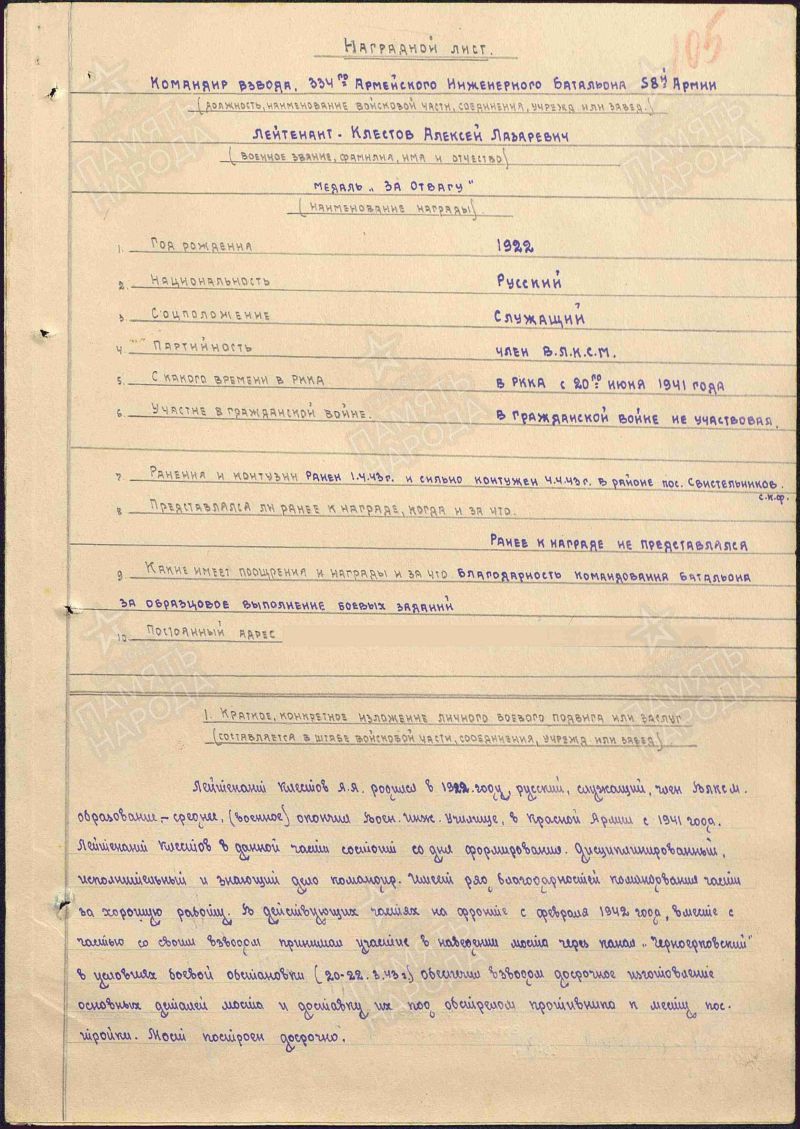 105
Наградной лист.
Командир взвода, 334го Армейского Инженерного Батальона 58й Армии
(должность, наименование войсковой части, соединения, учрежд или завед.)
Лейтенант - Клестов Алексей Лазаревич
(военное звание, фамилия, имя и отчество)
медаль „За отвагу"
(наименование награды).
1. Год рождения 1922
2. Национальность Русский
3. Соцположение Служащий
4. Партийность член В.Л.К.С.М.
5. С какого времени в РККА в РККА с 20го июня 1941 года
6. Участие в гражданской войне. в гражданской войне не участвовал.
7. Ранения и контузии Ранен 1.4.43г. и сильно контужен 4.4.43г. в районе пос. Свистельников.
с.к.ф.
8 Представлялся ли ранее к награде, когда и за что.
Ранее к награде не представлялся
9 Какие имеет поощрения и награды и за что Благодарность командования батальона
за образцовое выполнение боевых заданий
10. Постоянный адрес
1. Краткое, конкретное изложение личного боевого подвига или заслуг
(составляется в штабе войсковой части, соединения, учрежд или завед)
Лейтенант Клестов А.Л. родился в 1922 году, русский, служащий, член ВЛКСМ.
образование - средне, (военное) окончил Воен. Инж. Училище, в Красной Армии с 1941 года.
Лейтенант Клестов в данной части состоит со дня формирования. Дисциплинированный,
исполнительный и знающий дело командир. Имеет ряд благодарностей командования части
за хорошую работу. В действующих частях на фронте с февраля 1942 года, вместе с
частью со своим взводом принимал участие в наведении моста через канал „Черноерковский"
в условиях боевой обстановки (20-22.3.43г) обеспечил взводом досрочное изготовление
основных деталей моста и доставку их под обстрелом противника к месту пос-
тройки. Мост построен досрочно.
ПАМЯТЬ НАРОДА
ПАМЯТЬ НАРОДА
ПАМЯТЬ НАРОДА
ПАМЯТЬ НАРОДА
ПАМЯТЬ НАРОДА
ПАМЯТЬ НАРОДА